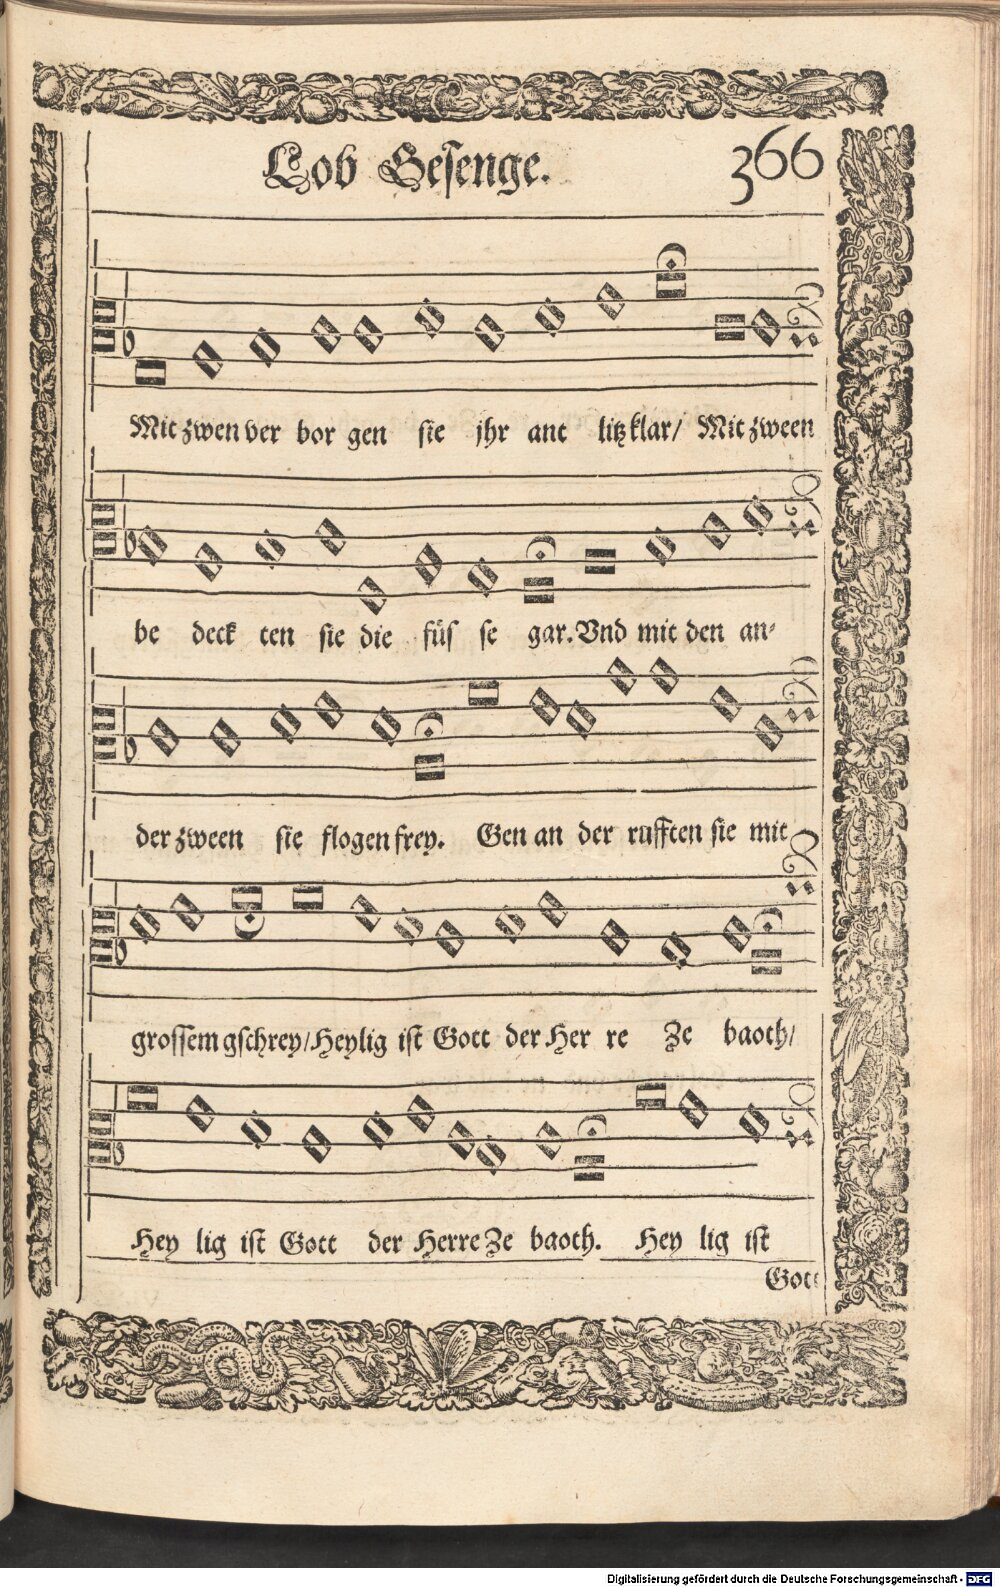 Lob Gesenge. 366
Mit zwen ver bor gen sie jhr ant litz klar/ Mit zween
be deck ten sie die füs se gar. Vnd mit den an⸗
der zween sie flogen frey. Gen an der rufften sie mit
grossem gschrey/ Heylig ist Gott der Her re Ze baoth/
Hey lig ist Gott der Herre Ze baoth. Hey lig ist
Gott
Digitalisierung gefördert durch die Deutsche Forschungsgemeinschaft - DFG